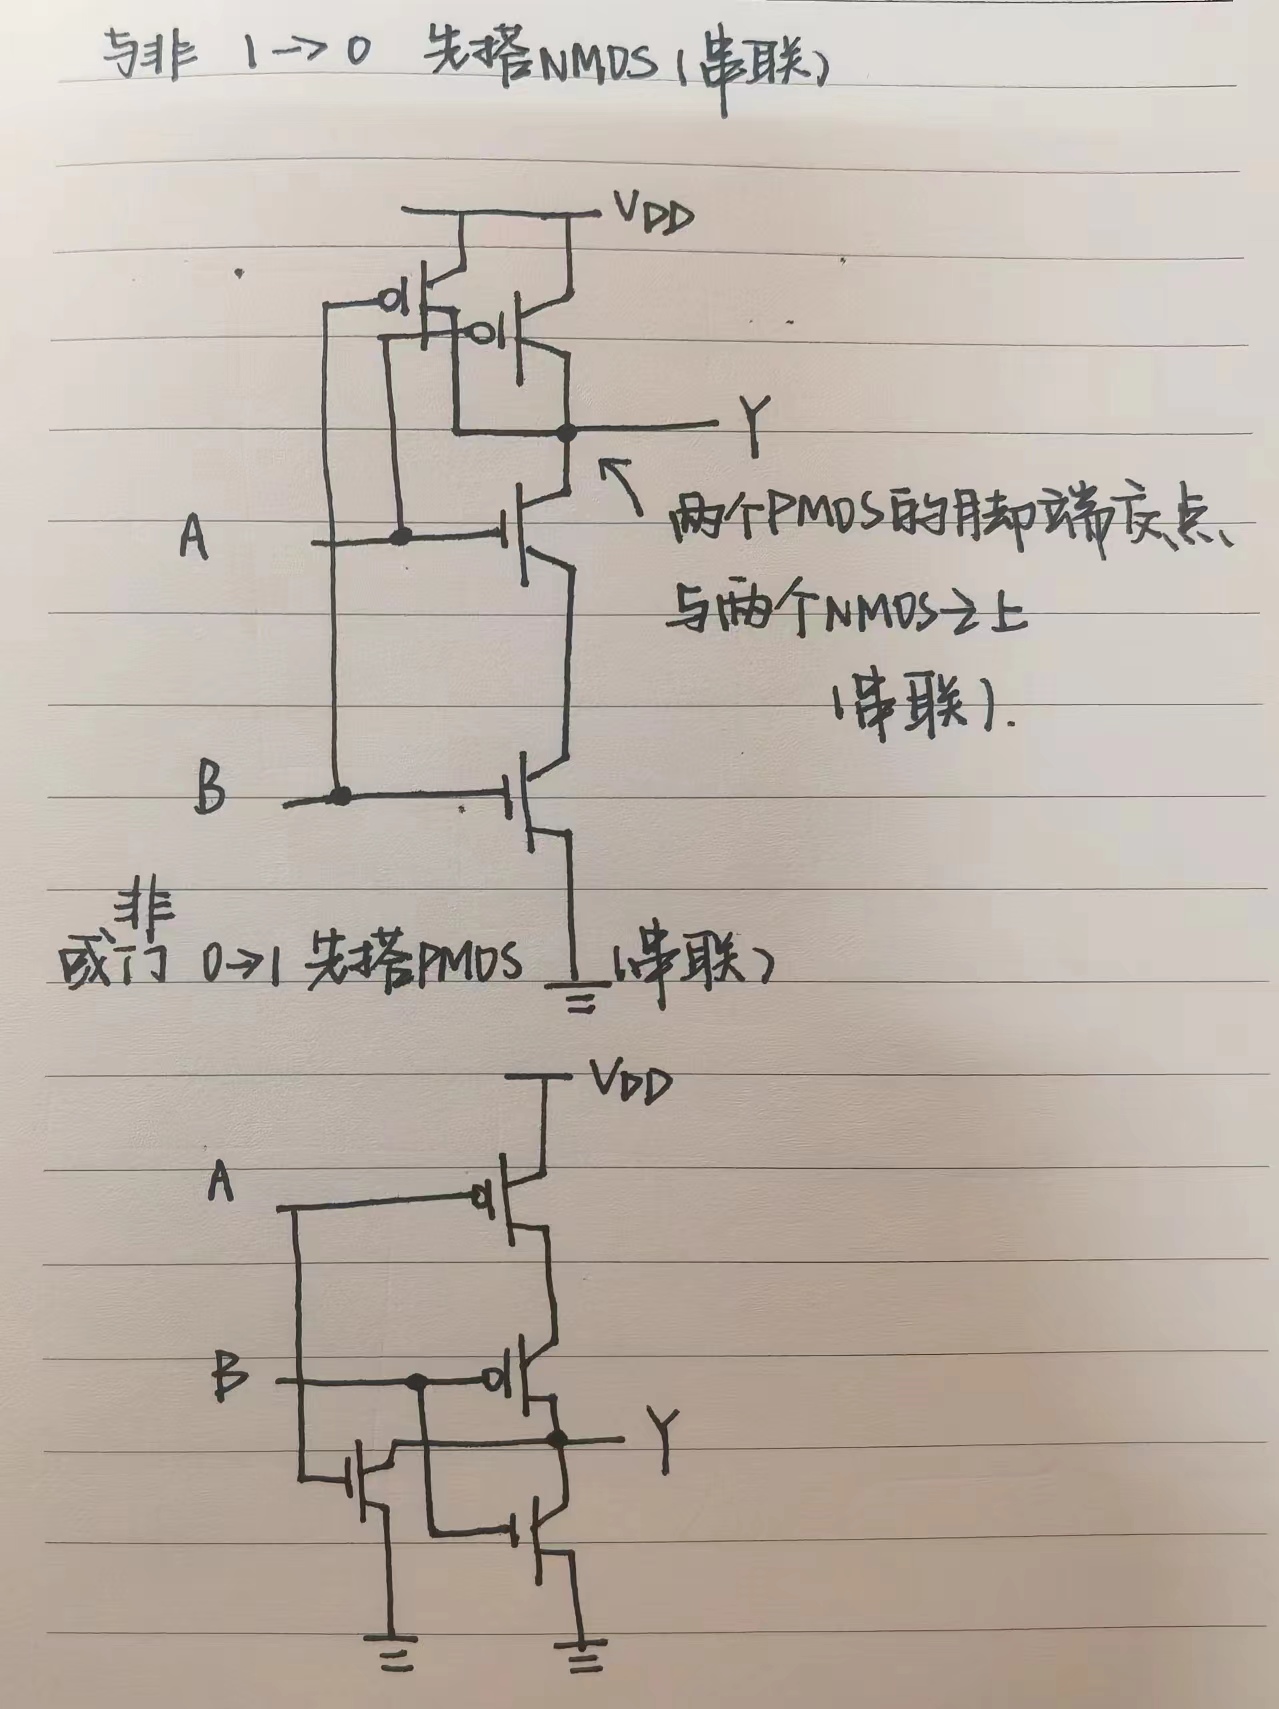 与非 1→0 先搭NMOS(串联)
VDD
Y
A
两个PMOS的脚端交点、
与两个NMOS之上
(串联).
B
非
或门 0→1 先搭PMOS (串联)
VDD
A
B
Y